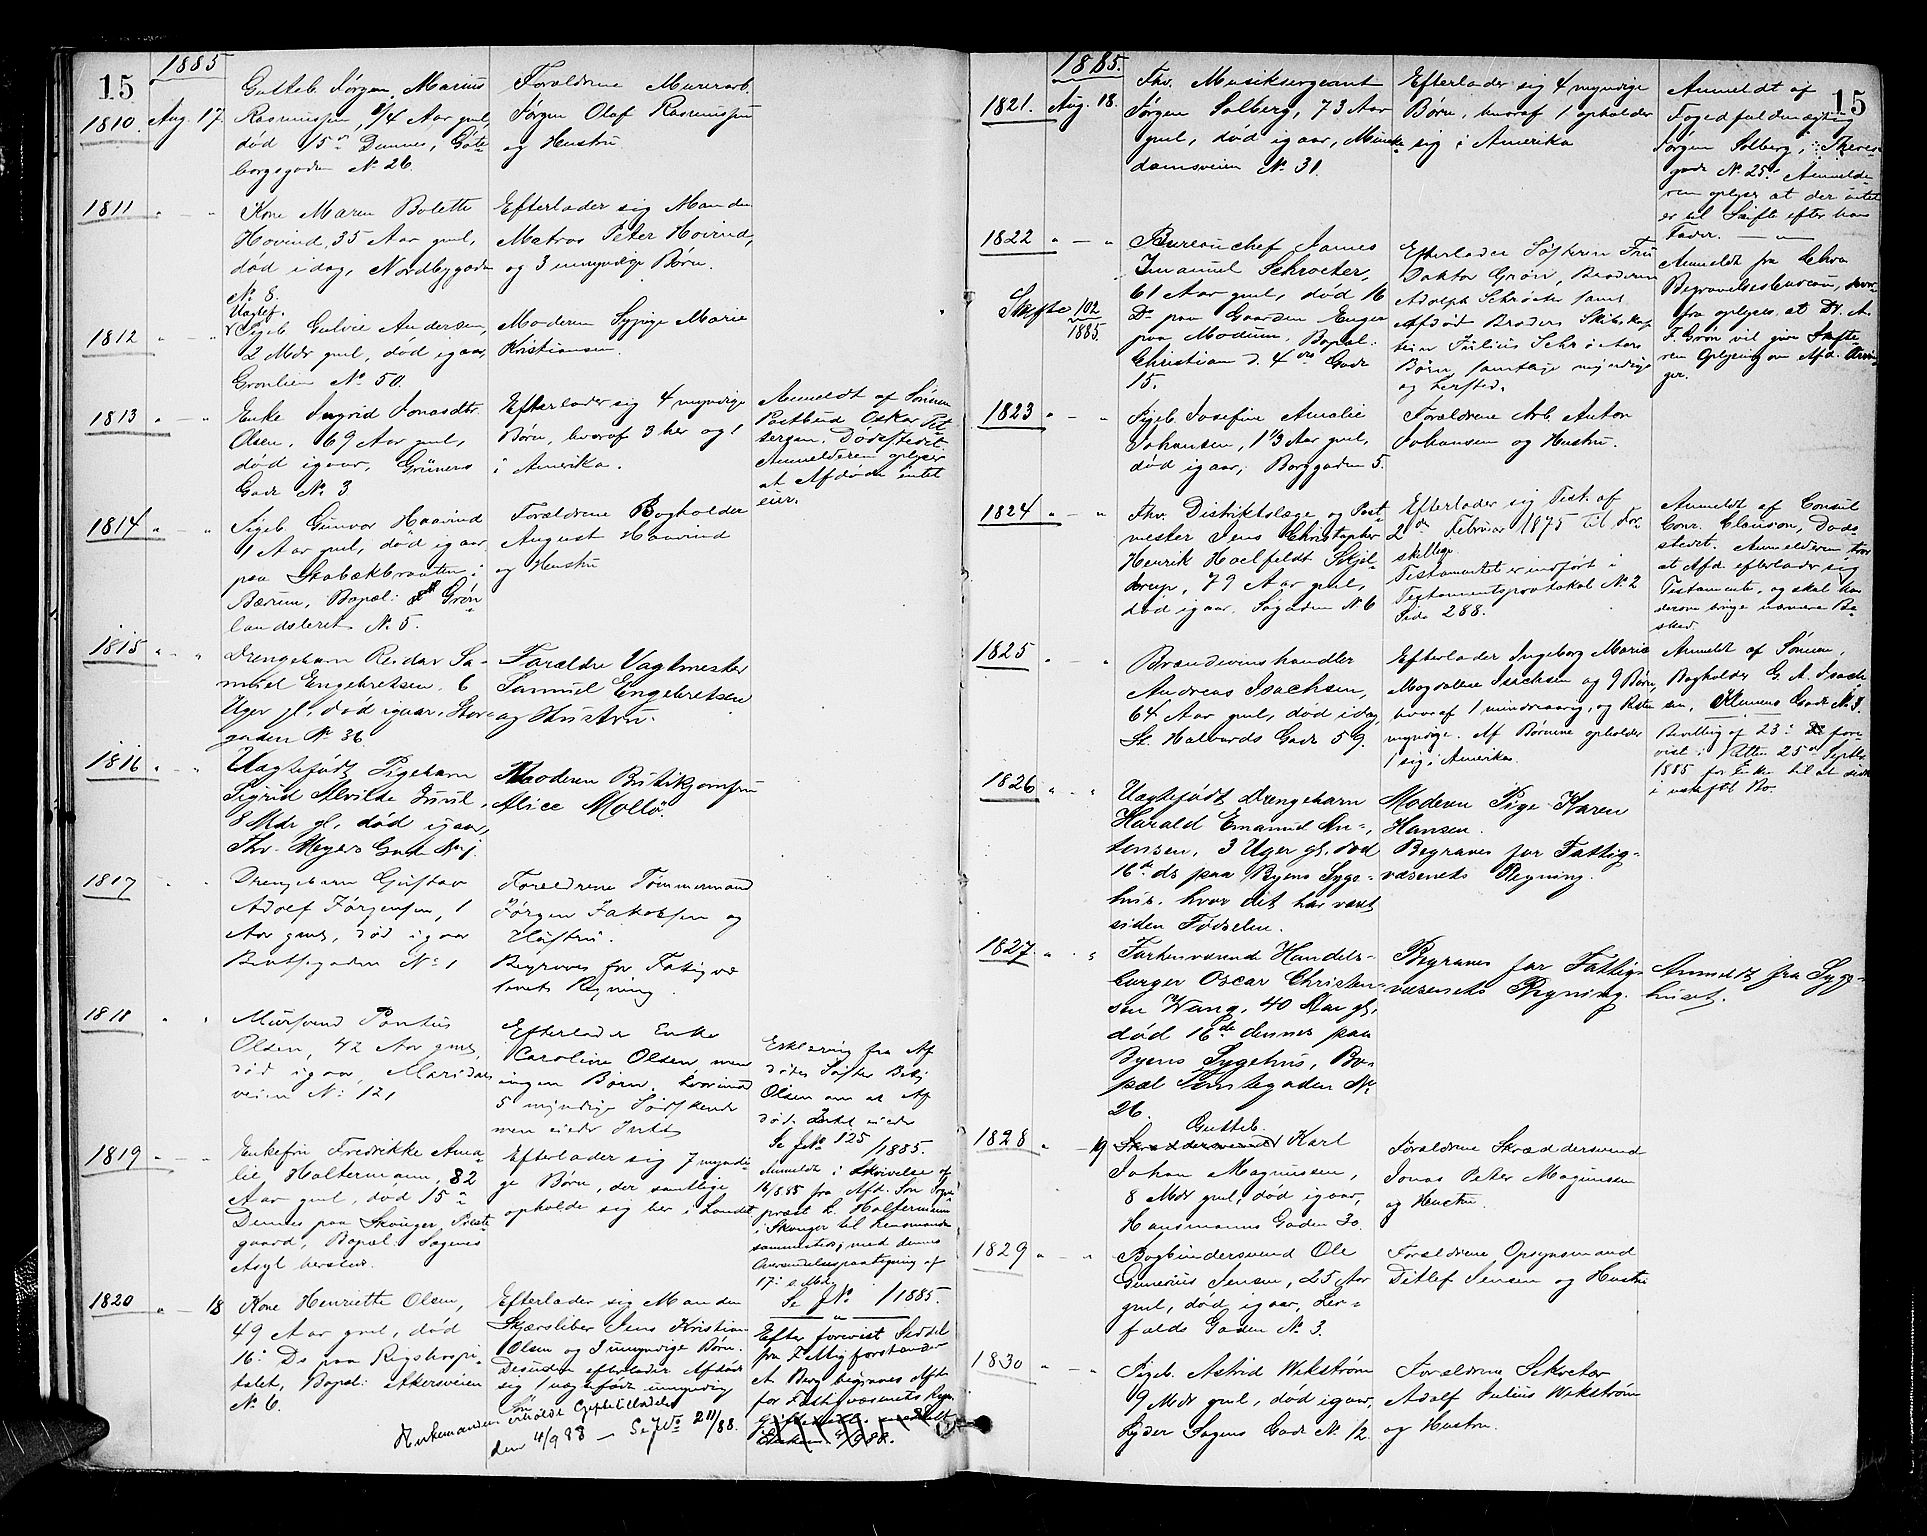 15
1885
1810. Aug. 17.
Gutteb. Jørgen Marius
Rasmussen, 1/4 Aar gml,
død 15de Dennes, Göte-
borgsgaden No 26.
Forældrene Murerarb.
Jørgen Olaf Rasmussen
og Hustru
1811 " — "
Kone Maren Bolette
Hovind, 35 Aar gml,
død idag, Nordbygaden
No 8.
Efterlader sig Manden
Matros Peter Hovind,
og 3 umyndige Børn.
1812 " — "
Uægtef.
Pigeb. Gulvie Andersen,
2 Mdr gml, død igaar,
Grønlien No 50.
Moderen Sypige Marie
Kristiansen.
1813 " — "
Enke Ingrid Jonasdtr.
Olsen, 69 Aar gml,
død igaar, Grüners
Gade No 3
Efterlader sig 4 myndige
Børn, hvoraf 3 her og 1
i Amerika.
Anmeldt af Sønnen
Postbud Oskar Pet-
tersen, Dødsstedet.
Anmelderen oplyser
at Afdøde intet
eier.
1814 " — "
Pigeb. Gunvor Haavind
1 Aar gml, død igaar
paa Stabækbraaten i
Bærum, Bopæl: Grøn
landsleret No 5.
Forældrene Bogholder
August Haavind
og Hustru
1815 " — "
Drengebarn Reidar Sa-
muel Engebretsen, 6
Uger gl. død igaar, Stor-
gaden No 36
Forældre Vagtmester
Samuel Engebretsen
og Hustru.
1816 " — "
Uægtefødt Pigebarn
Sigrid Alvilde Juul,
8 Mdr gl, død igaar,
Thv. Meyers Gade No 1.
Moderen Butikjomfru
Alice Mollø.
1817 " "
Drengebarn Gustav
Adolf Jørgensen, 1
Aar gml, død igaar
Bentsegaden No 1
Forældrene Tømmermand
Jørgen Jakobsen og
Hustru.
Begraves for Fattigvæ
senets Regning.
1818 " "
Mursvend Pontus
Olsen, 42 Aar gml,
død igaar, Maridals
veien No 121
Efterlader Enke
Caroline Olsen, men
ingen Børn,
5 myndige Sødskende
men eiede Intet
Erklæring fra Af
dødes Søster Betsy
Olsen om at Af
død. Intet eiede
Se J No 125 /1885.
1819 " — "
Enkefru Fredrikke Ama-
lie Holtermann, 82
Aar gml, død 15de
Dennes paa Skouger Præste
gaard, Bopæl: Sagenes
Asyl hersteds.
Efterlader sig 7 myndi-
ge Børn, der samtlige
opholde sig her i Landet
Anmeldt i Skrivelse af
16/8 85 fra Afd. Søn Sogne
præst L. Holtermann
i Skouger til Lensmanden
sammesteds, med dennes
Oversendelsespaategning af
17. s. Md.
Se J No /1885.
1820 " — 18
Kone Henriette Olsen,
49 Aar gml, død
16. Ds paa Rigshospi-
talet, Bopæl: Akersveien
No 6.
Efterlader sig Manden
Skjærsliber Jens Kristian
Olsen og 3 umyndige Børn.
Desuden efterlader Afdøde
sig 1 uægtefødt umyndig
Søn
Efter forevist Seddel
fra Fattigforstander
A. Berg begraves Afdø
for Fattigvæsenets Regn
Enkemanden erholdt Giftetilladelse
den 4/9 88 — Se J No 211/88.
15
1885.
1821. Aug. 18.
Fhv. Musiksergeant
Jørgen Solberg, 73 Aar
gml, død igaar, Munke-
damsveien No 31.
Efterlader sig 4 myndige
Børn, hvoraf 1 opholder
sig i Amerika
Anmeldt af
Fogedfuldmægtig
Jørgen Solberg, i Theres-
gade No 25. Anmelde-
ren oplyser at der intet
er til Skifte efter hans
Fader. —"—
1822 " — "
Skifte 102/1885.
Bureauchef James
Imanuel Schroeter,
61 Aar gml, død 16
Ds paa Gaarden Enger
paa Modum, Bopæl:
Christian d. 4des Gade
15.
Efterlader Søsteren Fru
Doktor Grøn, Broderen
Adolph Schrøeter samt
Afdød Broders Skibskap
tein Julius Schrøeters
Børn, samtlige myndige
og hersted.
Anmeldt fra Lehra
Begravelsesbureau, hvor-
fra oplyses at Dr. A.
F. Grøn vil give Skifte-
ren Oplysning om Afd. Arvin
ger.
1823 " — "
Pigeb. Josefine Amalie
Johansen, 1 1/3 Aar gml,
død igaar, Borggaden 5.
Forældrene Arb. Anton
Johansen og Hustru.
1824 " — "
Fhv. Distriktslæge og Post-
mester Jens Christopher
Henrik Hoelfeldt Skjel-
derup, 79 Aar gml,
død igaar, Søgaden No 6
Efterlader sig Test. af
2den Februar 1875 til For-
skellige.
Testamentet er indført i
Testamentsprotokol No 2
Side 288.
Anmeldt af Consul
Conr. Clauson, Døds
stedet. Anmelderen tror
at Afd. efterlader sig
Testamente, og skal han
derom bringe nærmere Be-
sked.
1825 " "
Brændevinshandler
Andreas Isachsen,
64 Aar gml, død idag,
St. Halvards Gade 59.
Efterlader Ingeborg Marie
Magdalene Isachsen og 9 Børn,
hvoraf 1 mindreaarig, og Resten
myndige. Af Børnene opholder
1 sig i Amerika.
Anmeldt af Sønnen,
Bogholder G. A. Isach
sen, Klemens Gade No 3.
Bevilling af 23. Ds fore
vist i Retten 25de Septbr
1885 for Enken til at sidde
i uskiftet Bo.
1826 " " "
Uægtefødt Drengebarn
Harald Emanuel An-
tonsen, 3 Uger gl. død
16de ds paa Byens Syge-
hus, hvor det har været
siden Fødselen.
Moderen Pige Karen
Hansen.
Begraves for Fattig-
væsenets Regning.
1827. " " "
Forhenværende Handels-
borger Oscar Christen-
sen Wang, 40 Aar gl,
død 16de dennes paa
Byens Sygehus, Bo-
pæl Tomtegaden No
26.
Begraves for Fattig-
væsenets Regning.
Anmeldt fra Syge-
huset.
1828 " — 19
Gutteb.
Skræddersvend Karl
Johan Magnussen,
8 Mdr gml, død igaar,
Hausmanns Gaden 30.
Forældrene Skræddersvend
Jonas Peter Magnussen
og Hustru.
1829 " — "
Bogbindersvend Ole
Gunerius Jensen, 25 Aar
gml, død igaar, Ler-
folds Gaden No 3.
Forældrene Opsynsmand
Ditlef Jensen og Hustru
1830 " — "
Pigeb. Astrid Wekstrøm
9 Mdr gml, død igaar,
Lyder Sagens Gade No 12.
Forældrene Sekretær
Adolf Julius Wekstrøm
og Hustru.